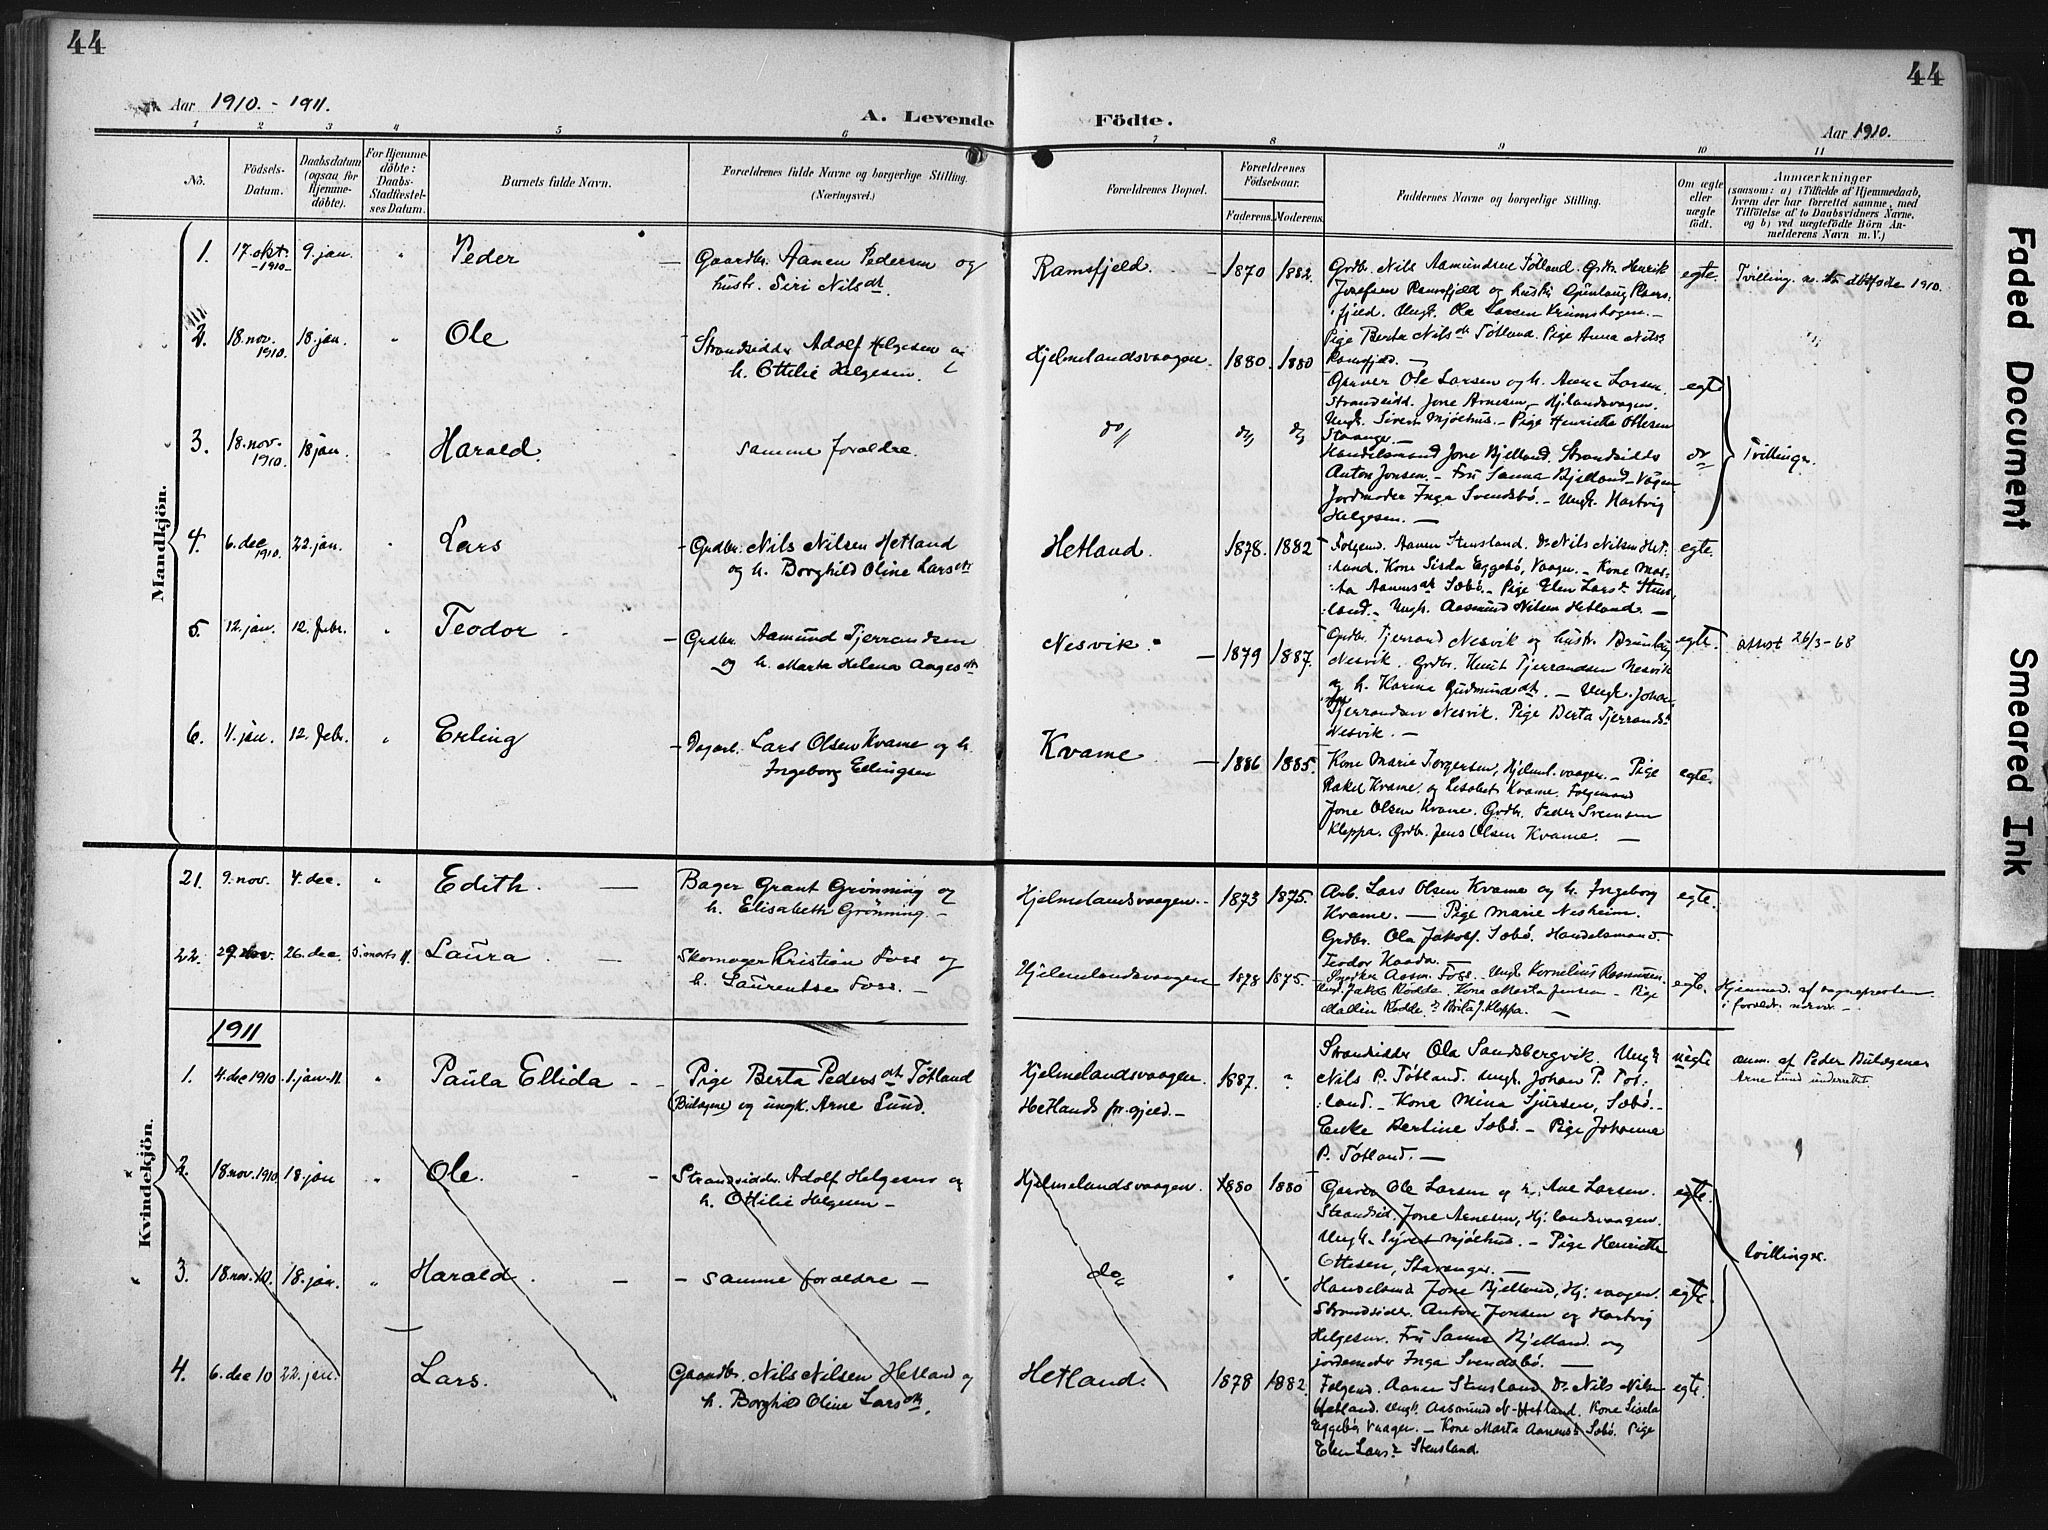 44
44
Aar 1910. - 1911.
A. Levende Födte.
Aar 1910.
1 2 3 4 5 6 7 8 9 10 11
No.
Födsels-
Datum.
Daabsdatum
(ogsaa for
Hjemme-
döbte).
For Hjemme-
döbte:
Daabs-
Stadfæstel-
ses Datum.
Barnets fulde Navn.
Forældrenes fulde Navne og borgerlige Stilling.
(Næringsvei.)
Forældrenes Bopæl.
Forældrenes
Födselsaar.
Faderens. Moderens.
Faddernes Navne og borgerlige Stilling.
Om ægte
eller
uægte
födt.
Anmærkninger
(saasom: a) i Tilfælde af Hjemmedaab,
hvem der har forrettet samme, med
Tilföielse af to Daabsvidners Navne,
og b) ved uægtefödte Börn An-
melderens Navn m. V.)
Mandkjön.
1. 17. okt. 9. jan. " Peder — Gaardbr. Aanen Pedersen og Ramsfjeld. 1870 1882. egte.
-1910-
hustr. Siri Nilsdt.
Grdbr. Nils Aamundsen Tøtland. Grdbr. Henrik
Josefsen Ramsfjeld og hustr. Gunlaug Rams-
fjeld. Ungk. Ole Larsen
Pige Berta Nilsdt Tøtland. Pige Anna Nils
Ramsfjeld. —
Tvilling 1910.
2. 18. nov. 18. jan. " Ole - Strandsidder Adolf Helgesen og Hjelmelandsvaagen. 1880. 1880 egte
1910.
h. Ottilie Helgesen.
Garver Ole Larsen og h. Anne Larsen.
Strandsidd. Jone Arnesen, Hj.landsvaagen.
Ungk. Sivert Mjølhus. - Pige Henriette Ottesen
Stavanger. —
3. 18. nov. 18 jan. " Harald. samme forældre. do do do do Tvillinger.
1910.
Handelsmand Jone Bjelland. Strandsidder
Anton Jonsen. - Fru Sanna Bjelland - Vågen
Jordmoder Inga Svendsbø. - Ungk. Hartvig
Helgesen. —
4. 6. dec 22. jan. " Lars - Grdbr. Nils Nilsen Hetland Hetland. 1878. 1882 egte.
1910.
og h. Borghild Oline Larsdtr
Folgemd. Aanen Stensland. Do Nils Nilsen Het-
land. Kone Sisela Eggebø, Vaagen. - Kone Mar-
ta Aanensdt Sæbø. - Pige Elen Larsdt Stens-
land. - Ungk. Aasmund Nilsen Hetland. —
5. 12. jan. 12. febr. " Teodor - Grdbr. Aamund Tjerrandsen Nesvik. — 1879 1887. egte. attest 26/3-68
og h. Marta Helena Aagesdt
Grdbr. Tjerrand Nesvik og hustr. Brunlaug
Nesvik. Grdbr. Knut Tjerrandsen Nesvik
og h. Karina Gudmundsdt. - Ungk. Johan
Tjerrandsen Nesvik. Pige Berta Tjerrandsdt
Nesvik. —
6. 11. jan. 12. febr. " Erling - Dagarb. Lars Olsen Kvame og h. Kvame — 1886 1885. egte.
Ingeborg Ellingsen
Kone Marie Torgersen, Hjelml.vaagen. - Pige
Rakel Kvame og Lisabet Kvame. Folgemand
Jone Olsen Kvame. Grdbr. Peder Svensen
Kleppa. Grdbr. Jens Olsen Kvame. —
Kvindekjön.
21. 9. nov. 4. dec. " Edith. — Bager Grant Grønning og Hjelmelandsvaagen. 1873 1875. egte.
h. Elisabeth Grønning. -
Arb. Lars Olsen Kvame og h. Ingeborg
Kvame. — Pige Marie Nesheim.
Grdbr. Ola Jakobs. Sæbø. Handelsmand
Teodor Haada.
22. 29. nov. 26. dec. 5. marts 11. Laura — Skomager Kristian Foss og Hjelmelandsvaagen 1878 1875. egte.
h. Laurentse Foss. -
Snedker Aasm. Foss. Ungk. Kornelius Rasmussen.
Ungk. Jakob Rødde. Kone Marta Jensen - Pige
Mallin Rødde. Brita J. Kleppa. —
Hjemmed. af sognepresten
i foræld. nærvær. -
1911
1. 4. dec 1910. 1. jan. 11 " Paula Ellida - Pige Berta Pedersdt. Tøtland Hjelmelandsvaagen. 1887. " uegte
(Buløyne) og ungk. Arne Lund. Hetlands pr.gjeld. -
Strandsidder Ola Sandsbergvik. Ungk
Nils P. Tøtland. Ungk. Johan P. Tøt-
land. - Kone Mina Sjursen, Sæbø. -
Enke Bertine Sæbø. - Pige Johanne
P. Tøtland. —
anm. af Peder
Arne Lund underrettet.
2. 18. nov. 1910. 18. jan " Ole. - Strandsidder. Adolf Helgesen og Hjelmelandsvaagen. 1880 1880 egte.
h. Ottilie Helgesen -
Garver Ole Larsen og h. Ane Larsen.
Strandsid. Jone Arnesen, Hj.landsvaagen.
Ungk. Syvert Mjølhus. - Pige Henriette
Ottesen, Stavanger. —
tvillinger.
3. 18. nov. 10. 18. jan. " Harald. — - samme forældre - do " " egte.
Handelsmd Jone Bjelland, Hj: vaagen.
Strandsidder. Anton Jonsen og Hartvig
Helgesen. Fru Sanna Bjelland og
jordemoder Inga Svendsbø. —
4. 6. dec 10 22. jan. Lars. Gaardbr. Nils Nilsen Hetland og Hetland. 1878 1882. egte.
h. Borghild Oline Larsdtr.
Folgemd. Aanen Stensland Do Nils Nilsen
Hetland. Ungk. Aasmund N. Hetland. Kone Sisela
Eggebø Vaagen. - Kone Marta Aanensdt Sæbø. Pige
Elen Larsdt Stensland.
Faded Document
Smeared Ink